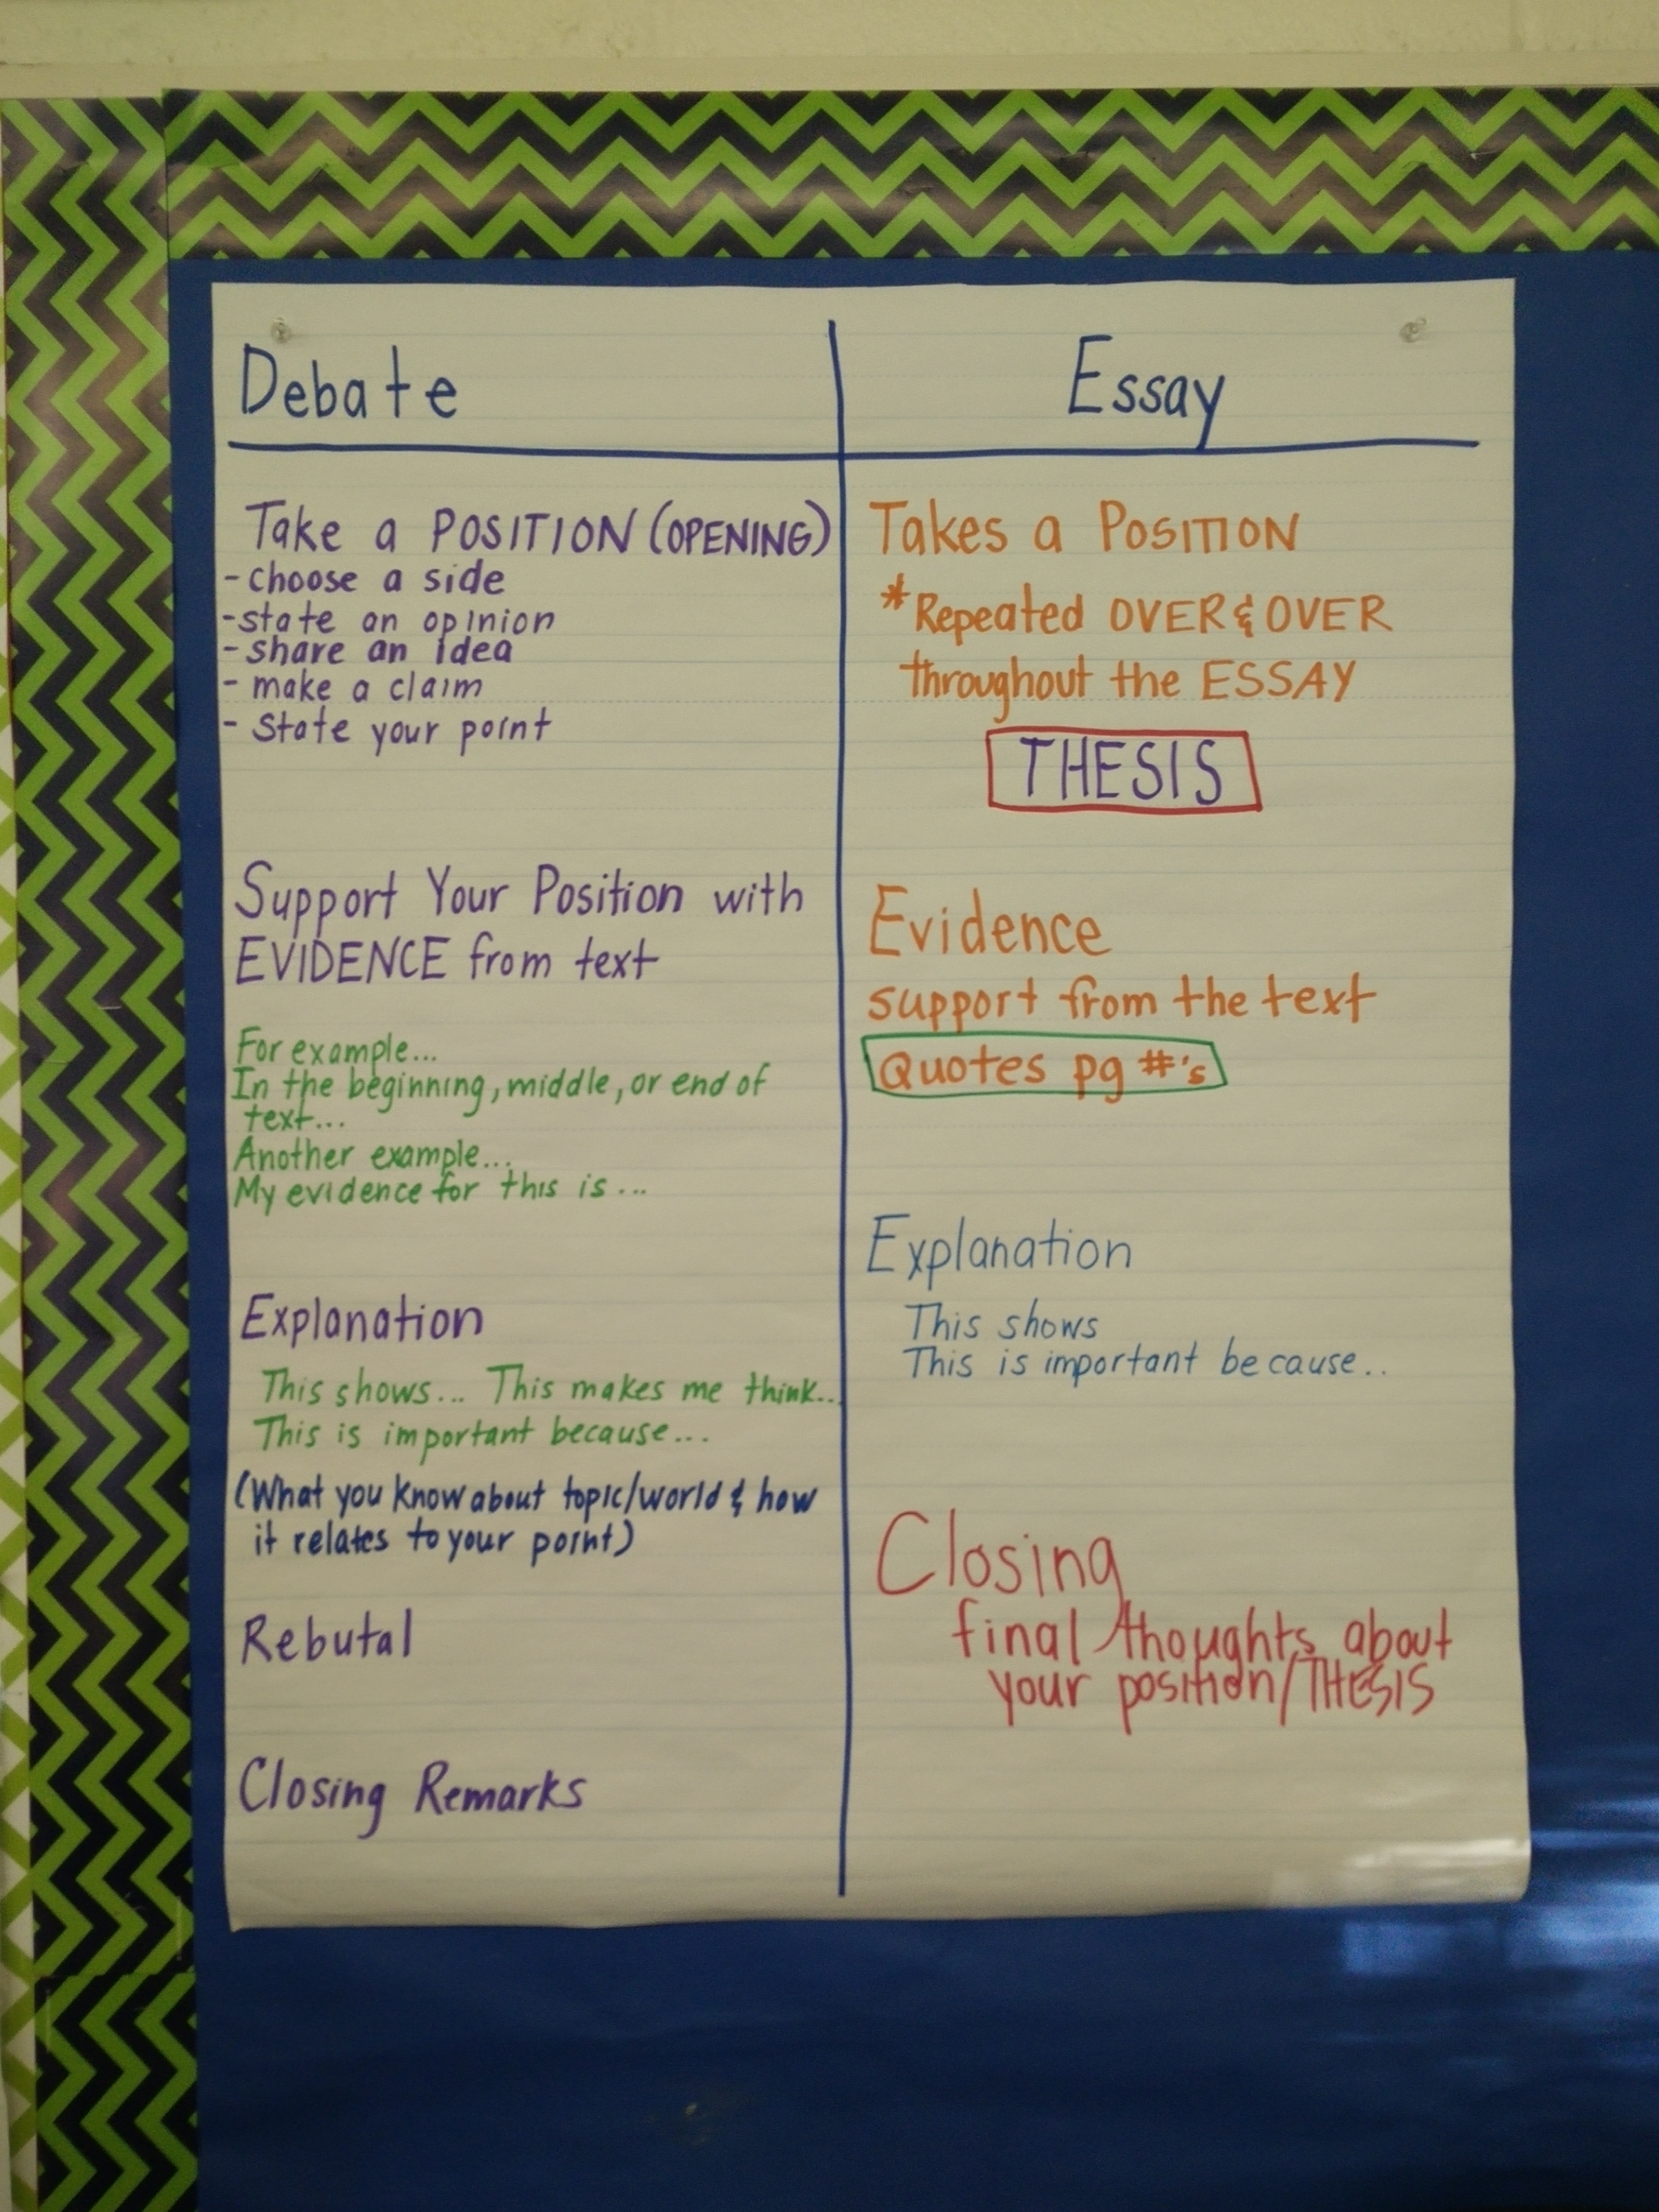 Debate
Take a POSITION (OPENING)
- choose a side
- state an opinion
- share an idea
- make a claim
- State your point
Support Your Position with
EVIDENCE from text
For example...
In the beginning, middle, or end of
text...
Another example...
My evidence for this is ...
Explanation
This shows... This makes me think...
This is important because...
(What you know about topic/world & how
it relates to your point)
Rebutal
Closing Remarks
Essay
Takes a POSITION
*Repeated OVER & OVER
throughout the ESSAY
THESIS
Evidence
support from the text
Quotes pg #'s
Explanation
This shows
This is important because..
Closing
final thoughts about
your position/THESIS